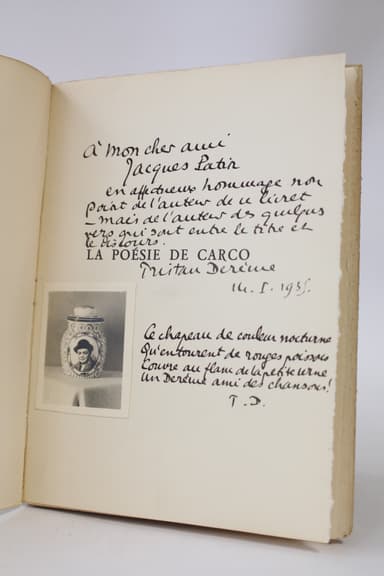 À mon cher ami
Jacques Patin
en affectueux hommage non
point de l'auteur de ce livret
– mais de l'auteur des quelques
vers qui sont entre le titre et
le discours.
LA POÉSIE DE CARCO
Tristan Derème
1935.
Ce chapeau de couleur nocturne
Qu'entourent de rouges poissons
Couvre au flanc de la petite urne
Un Derème ami des chansons!
T. D.